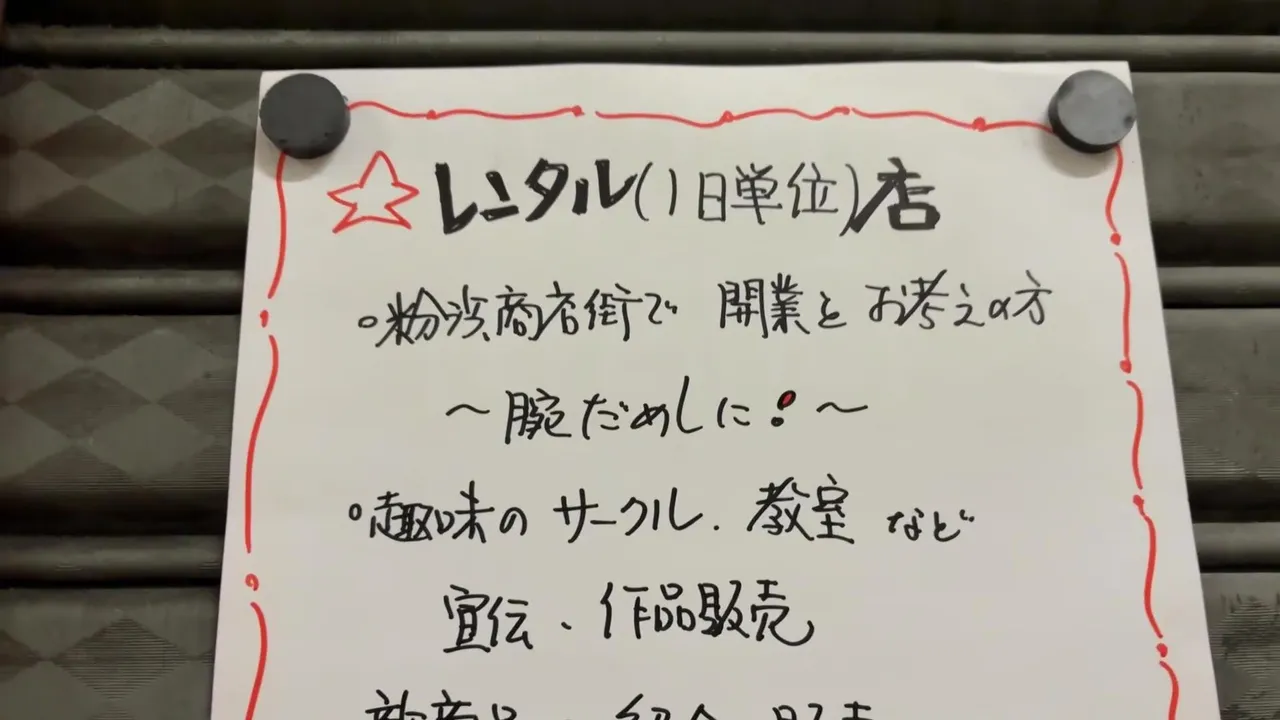 ☆レンタル(1日単位)店
○粉浜商店街で 開業とお考えの方
～腕だめしに!～
○趣味の サークル、教室 など
宣伝、作品販売
新商品 紹介